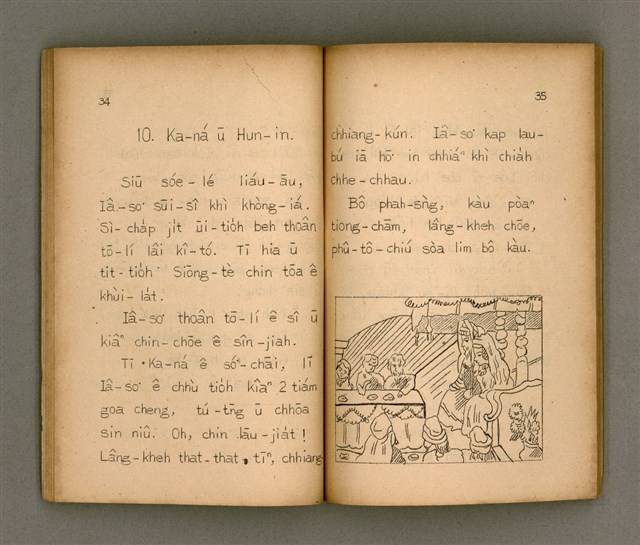 34
10. Ka-ná ū Hun-in.
Siū sóe-lé liáu-āu,
Iâ-so͘ sûi-sî khì khòng-iá.
Sì-cha̍p ji̍t ūi-tio̍h beh thoân
tō-lí lâi kî-tó. Tī hia ū
tit-tio̍h Siōng-tè chin tōa ê
khùi-la̍t.
Iâ-so͘ thoân tō-lí ê sî ū
kiâⁿ chin-chōe ê sîn-jiah.
Tī Ka-ná ê só͘-chāi, lī
Iâ-so͘ ê chhù tio̍h kîaⁿ 2 tiám
goa cheng, tú-tn̄g ū chhōa
sin niû. Oh, chin lāu-jia̍t!
Lâng-kheh that-that, tīⁿ, chhiang
35
chhiang-kún. Iâ-so͘ kap lau-
bú iā hō͘ in chhiáⁿ khì chia̍h
chhe-chhau.
Bô phah-sǹg, kàu pòaⁿ
tiong-chām, lâng-kheh chōe,
phû-tô-chiú sòa lim bô kàu.